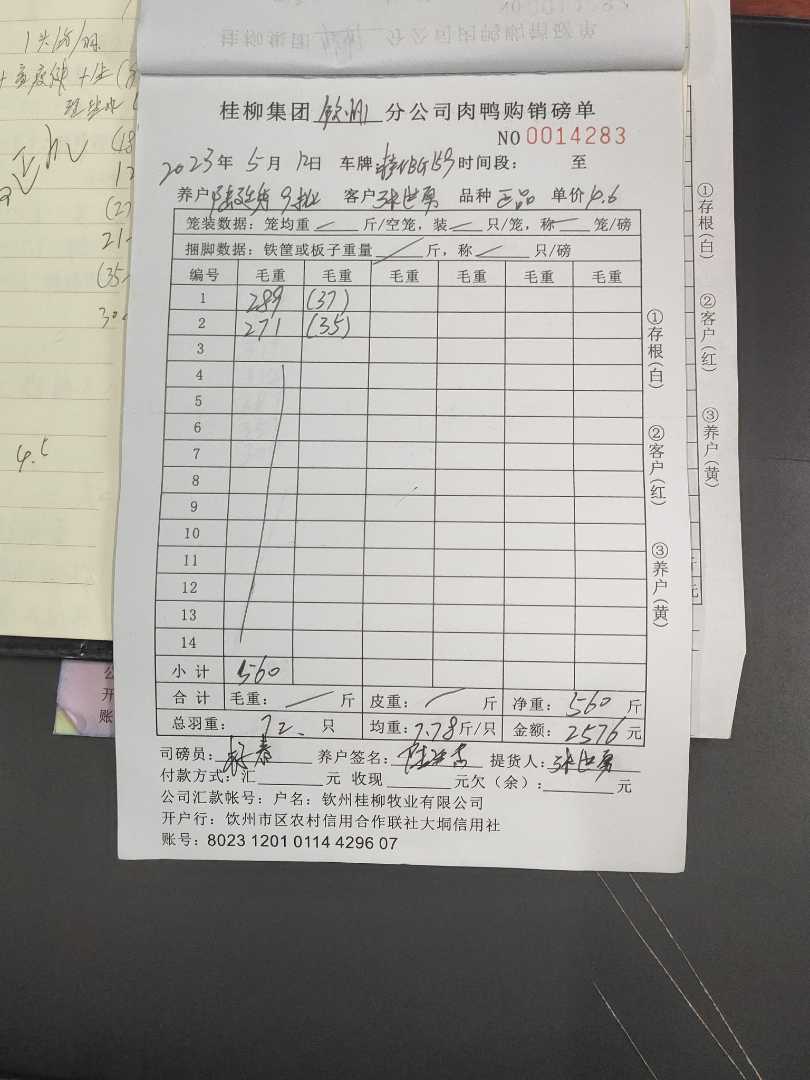 桂柳集团 钦州 分公司肉鸭购销磅单
NO 0014283
2023年 5月 12日 车牌: 时间段: 至
养户 客户 张世勇 品种 正品 单价 4.6
笼装数据: 笼均重 斤/空笼, 装 只/笼, 称 笼/磅
捆脚数据: 铁筐或板子重量 斤, 称 只/磅
编号 毛重 毛重 毛重 毛重 毛重 毛重
1 289 (37)
2 271 (35)
3
4
5
6
7
8
9
10
11
12
13
14
小计 560
合计 毛重: 斤 皮重: 斤 净重: 560 斤
总羽重: 72. 只 均重: 7.78斤/只 金额: 2576元
司磅员: 养户签名: 提货人: 张世勇
付款方式: 汇 元 收现 元欠(余): 元
公司汇款帐号: 户名: 钦州桂柳牧业有限公司
开户行: 饮州市区农村信用合作联社大垌信用社
账号: 8023 1201 0114 4296 07
①存根(白)
②客户(红)
③养户(黄)
①存根(白)
②客户(红)
③养户(黄)